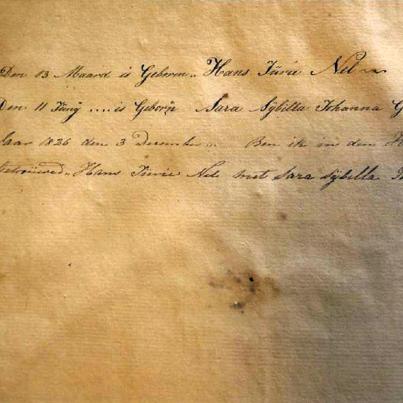 Den 13 Maard is Geboren.. Hans Jurie Nel
Den 11 Juny .... is Geborn Sara Sÿbilla Johanna G
Jaar 1826 den 3 December .. Ben ik in den
Getrouwed.. Hans Jurie Nel met Sara Sÿbilla